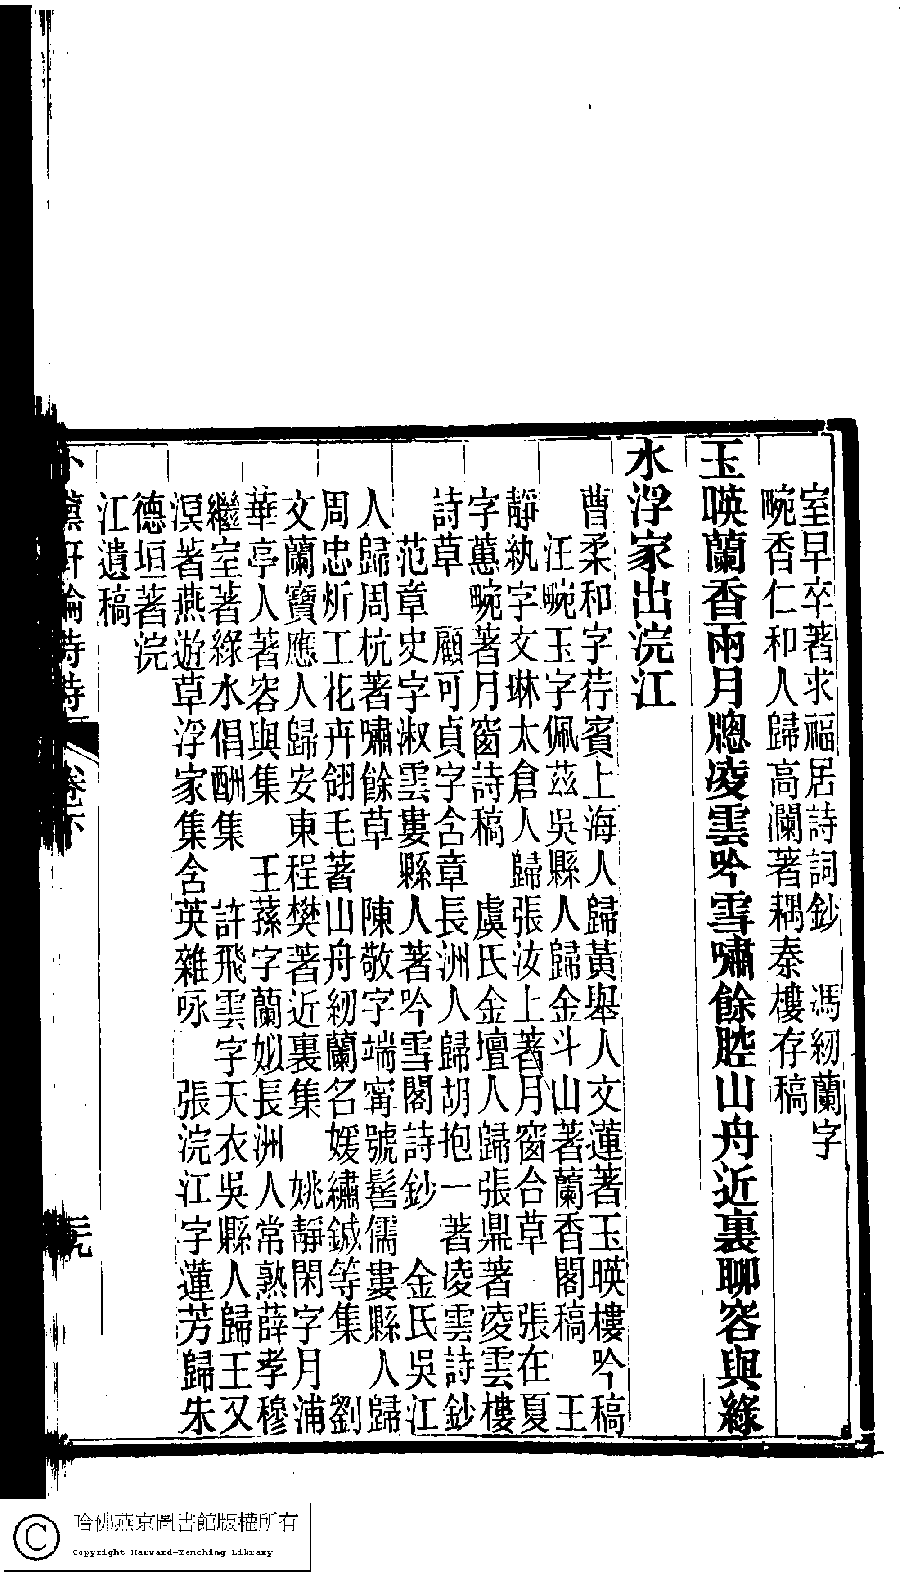 室早卒著求福居詩詞鈔　馮紉蘭字
畹香仁和人歸高瀾著耦秦樓存稿
玉暎蘭香兩月牕凌雲吟雪嘯餘腔山舟近裏聊容與綠
水浮家出浣江
曹柔和字荇賓上海人歸黃舉人文蓮著玉暎樓吟稿
汪畹玉字佩茲吳縣人歸金斗山著蘭香閣稿　王
靜紈字文琳太倉人歸張汝上著月窗合草　張在夏
字蕙畹著月窗詩稿　虞氏金壇人歸張鼎著凌雲樓
詩草　顧可貞字含章長洲人歸胡抱一著凌雲詩鈔
范章史字淑雲婁縣人著吟雪閣詩鈔　金氏吳江
人歸周杭著嘯餘草　陳敬字端甯號髻儒婁縣人歸
周忠炘工花卉翎毛著山舟紉蘭名媛繡鍼等集　劉
文蘭寶應人歸安東程樊著近裏集　姚靜閑字月浦
華亭人著容與集　王蓀字蘭姒長洲人常熟薛孝穆
繼室著綠水倡酬集　許飛雲字天衣吳縣人歸王又
溟著燕遊草浮家集含英雜咏　張浣江字蓮芳歸朱
德垣著浣
江遺稿
黛軒論詩詩　卷下　元
哈佛燕京圖書館版權所有
Copyright Harvard-Yenching Library